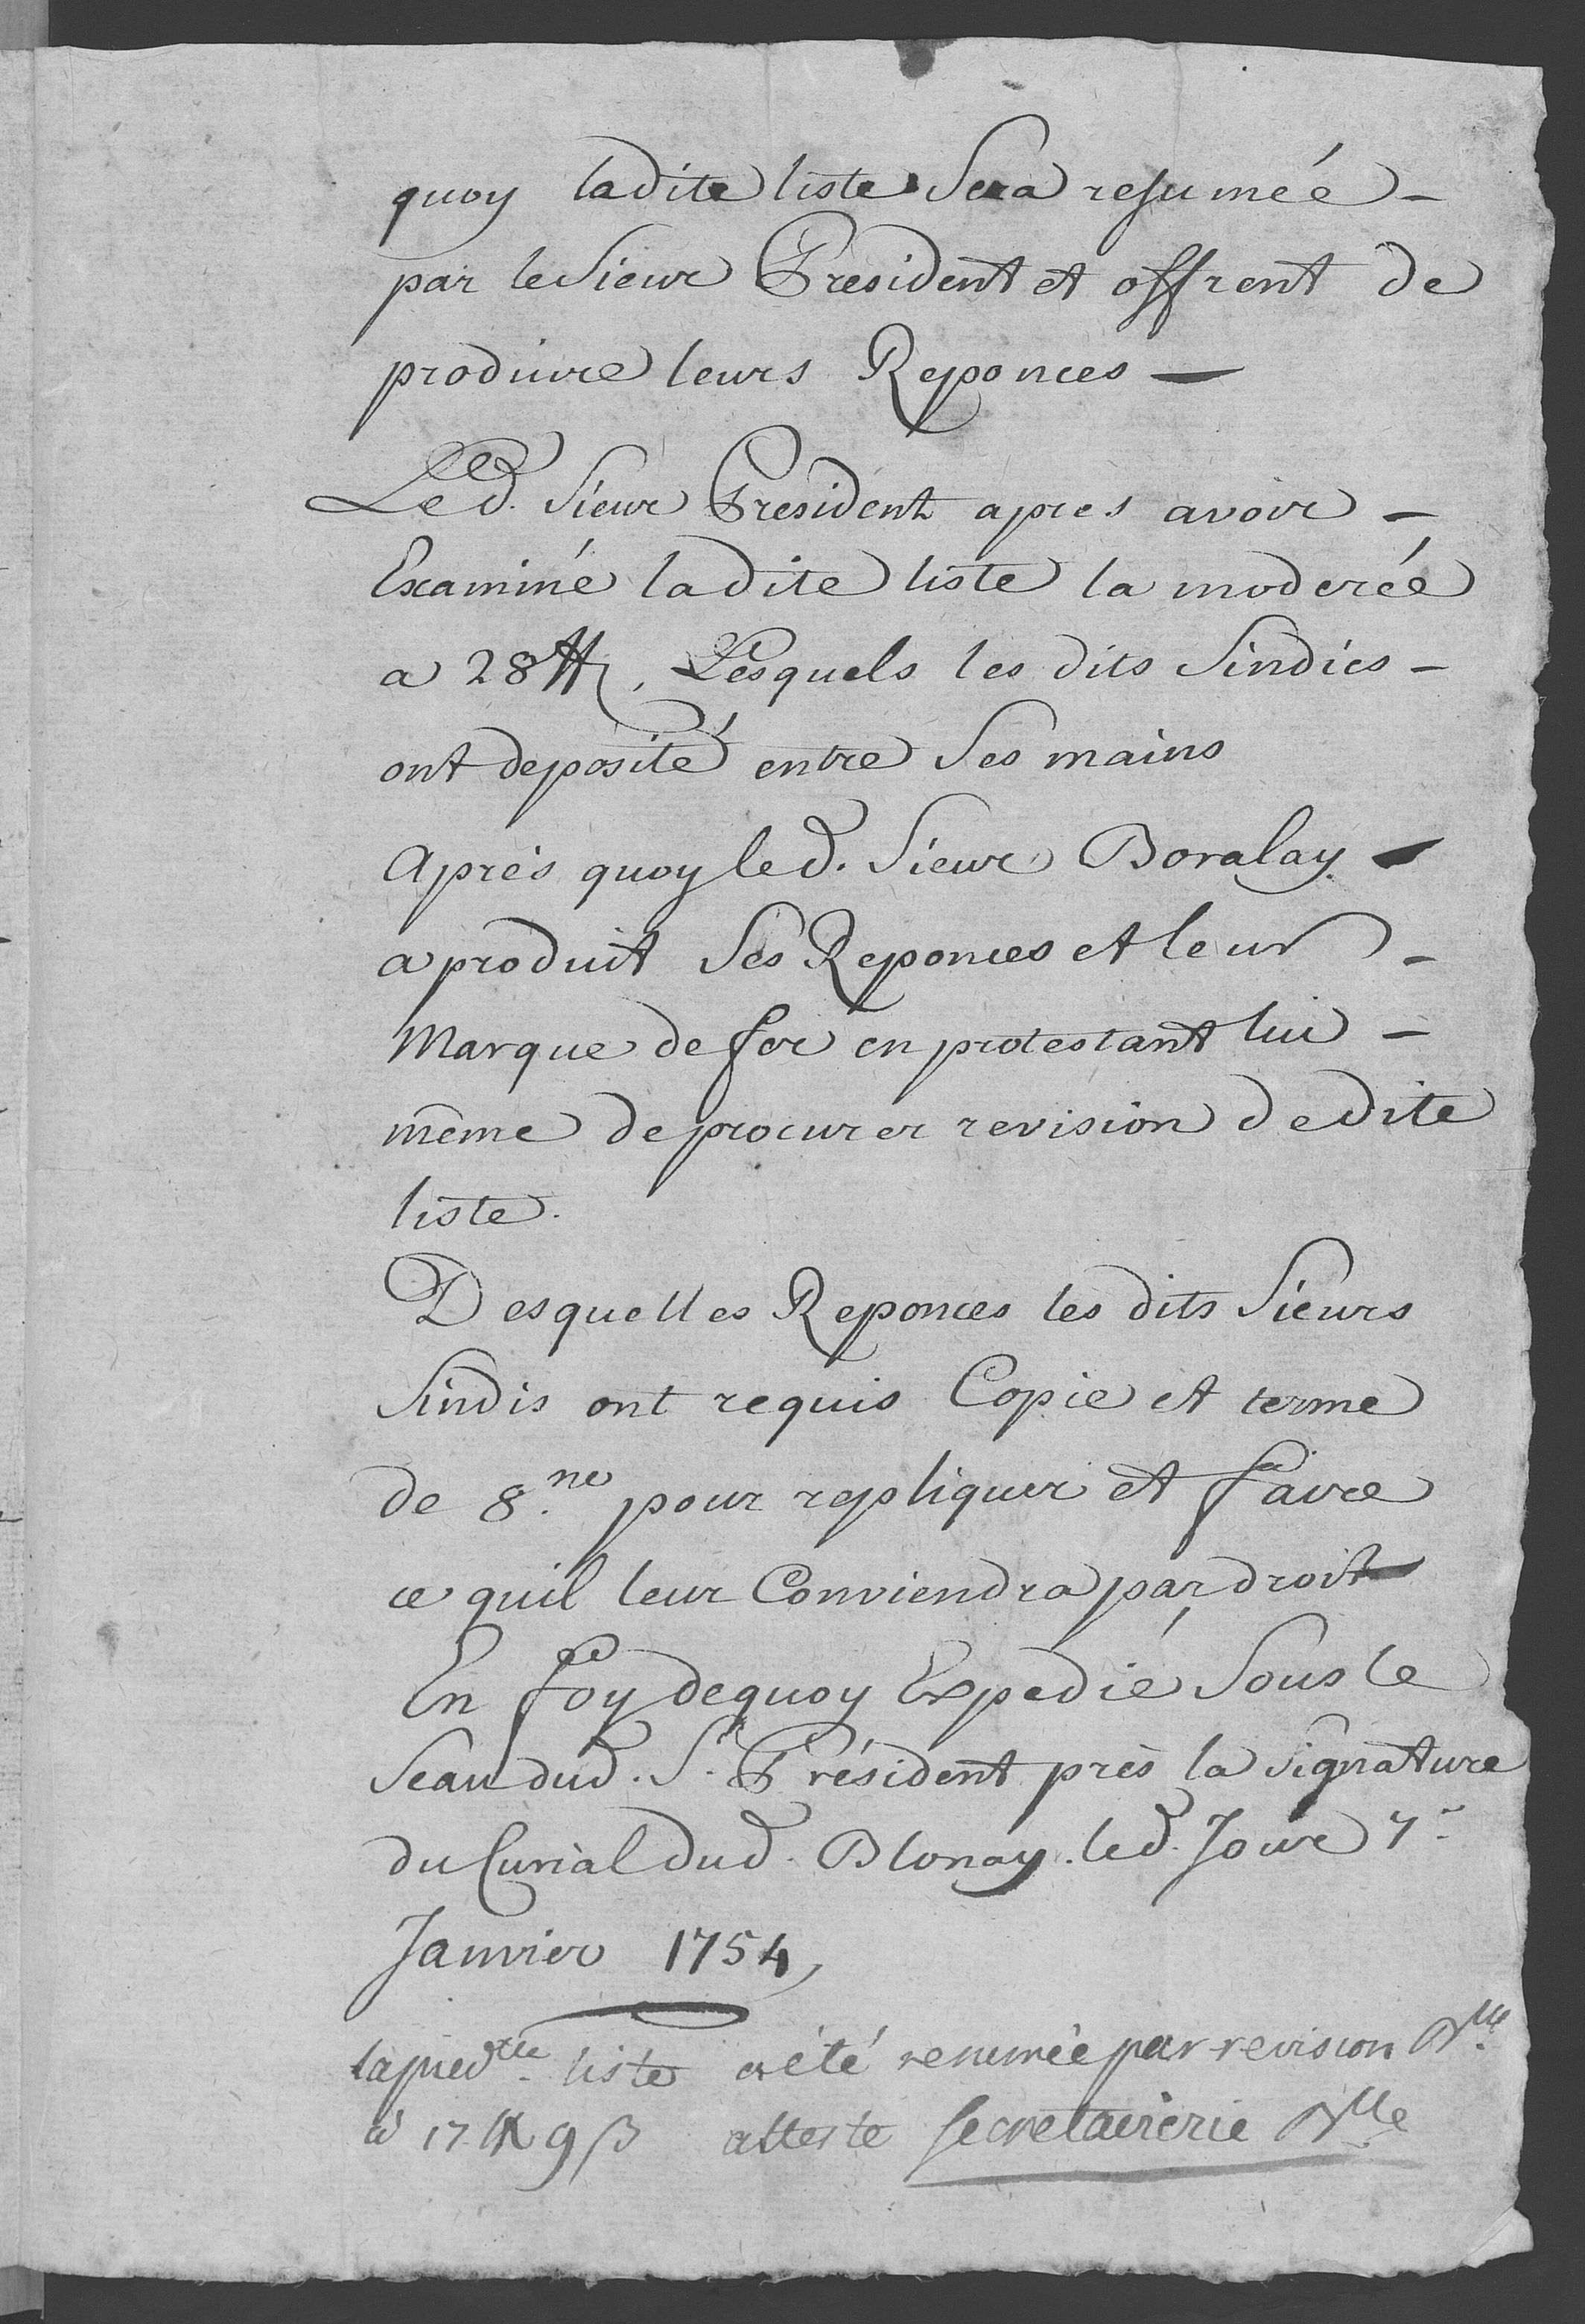 quoy ladite liste Sera resumée -
par le Sieur President et offrent de
produire leurs Reponces -
Led. Sieur President apres avoir -
Examiné ladite liste la moderée
a 28 ₶, Lesquels les dits Sindics -
ont deposité entre Ses mains
Après quoy led. Sieur Boralay -
a produit Ses Reponces et leur -
Marque de fer en protestant lui -
même de procurer revision dedite
liste.
Desquelles Reponces les dits Sieurs
Sindis ont requis Copie et terme
de 8.ne pour repliquer et faire
ce quil leur Conviendra par droit -
En foy dequoy Expedié Sous le
Seau dud. Sr. Président près la Signature
du Curial dud. Blonay. led. Jour 7e
Janvier 1754,
lapred.tte liste a été renumée par revision Blle.
à 17 ₶ 9 ß atteste Secretairerie Blle